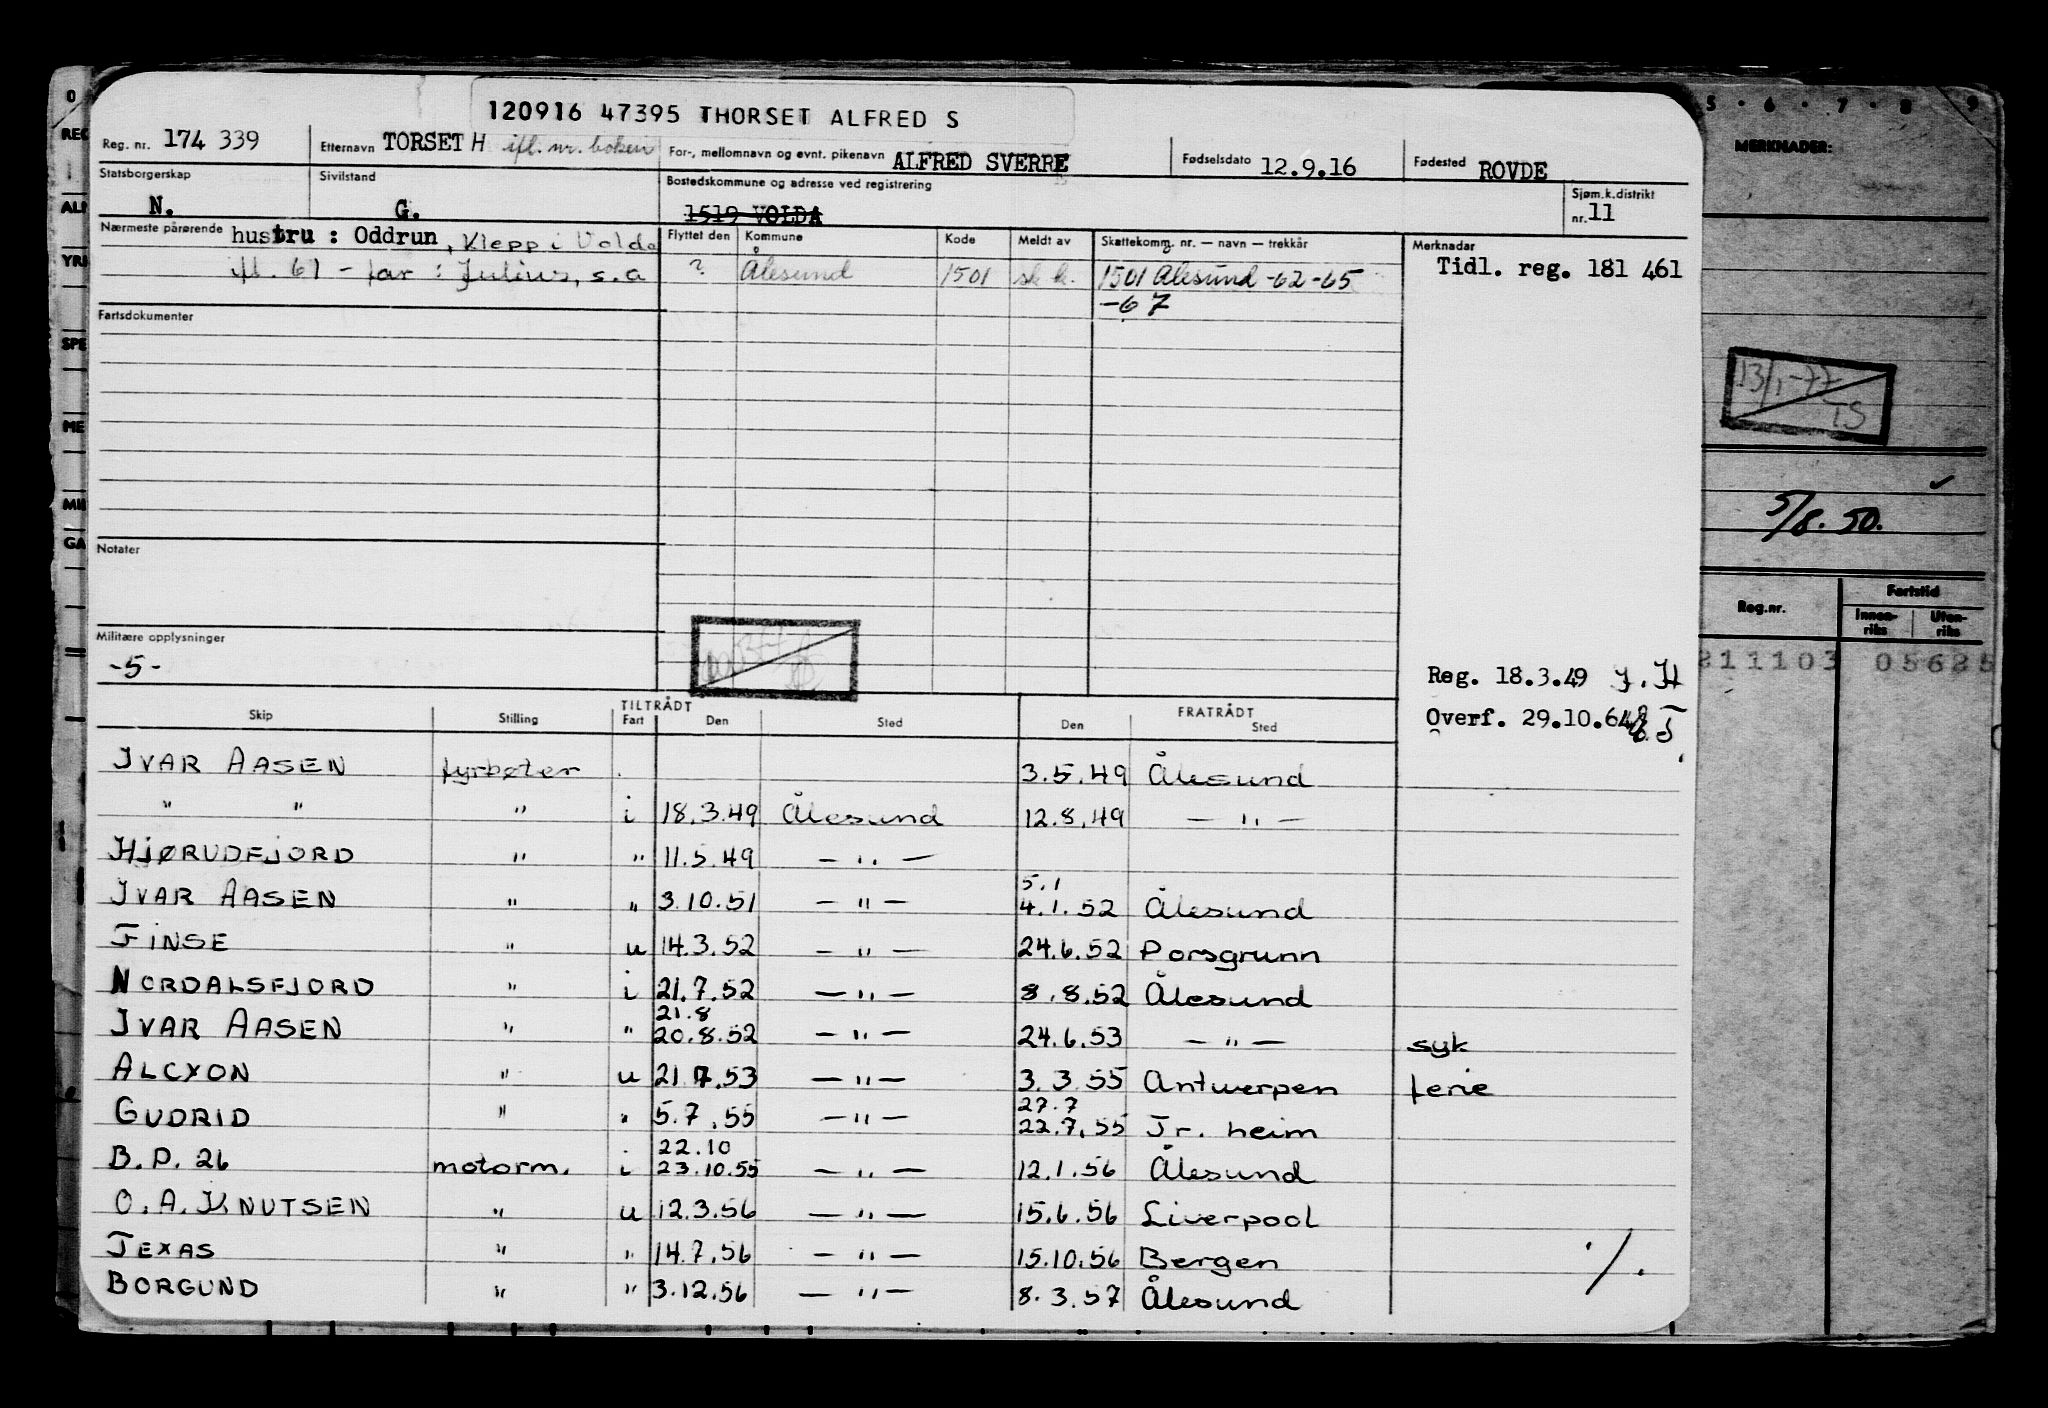 120916 47395 THORSET ALFRED S
Reg. nr. 174 339 Etternavn TORSETH ifl. nr. boken For-, mellomnavn og evnt. pikenavn ALFRED SVERRE Fødselsdato 12.9.16 Fødested ROVDE
Statsborgerskap N. Sivilstand G. Bostedskommune og adresse ved registrering 1519 VOLDA Sjøm.k.distrikt nr. 11
Nærmeste pårørende hustru : Oddrun, Klepp i Volda
ifl. 61 - far : Julius, s.a
Flyttet den Kommune Kode Meldt av Skattekomm. nr. — navn — trekkår Merknader
? Ålesund 1501 sk k. 1501 Ålesund -62-65 Tidl. reg. 181 461
-67
Fartsdokumenter
Notater
Militære opplysninger
-5-
Reg. 18.3.49 J.H
Overf. 29.10.64
TILTRÅDT FRATRÅDT
Skip Stilling Fart Den Sted Den Sted
IVAR AASEN fyrbøter 3.5.49 Ålesund
" " " i 18.3.49 Ålesund 12.8.49 — " —
HJØRUDFJORD " " 11.5.49 — " —
5.1
IVAR AASEN " " 3.10.51 — " — 4.1.52 Ålesund
FINSE " u 14.3.52 — " — 24.6.52 Porsgrunn
NORDALSFJORD " i 21.7.52 — " — 8.8.52 Ålesund
21.8
IVAR AASEN " " 20.8.52 — " — 24.6.53 — " — syk
ALCYON " u 21.7.53 — " — 3.3.55 Antwerpen ferie
27.7
GUDRID " " 5.7.55 — " — 22.7.55 Tr. heim
22.10
B.P. 26 motorm. i 23.10.55 — " — 12.1.56 Ålesund
O.A. KNUTSEN " u 12.3.56 — " — 15.6.56 Liverpool
TEXAS " " 14.7.56 — " — 15.10.56 Bergen
BORGUND " " 3.12.56 — " — 8.3.57 Ålesund
./.
0
REG
ALF
YRK
SPE
ME
MII
GA
5 · 6 · 7 · 8 · 9
MERKNADER:
13/1-77
TS
5/8. 50.
Reg.nr. Fartstid
Innen-riks Uten-riks
211103 05625